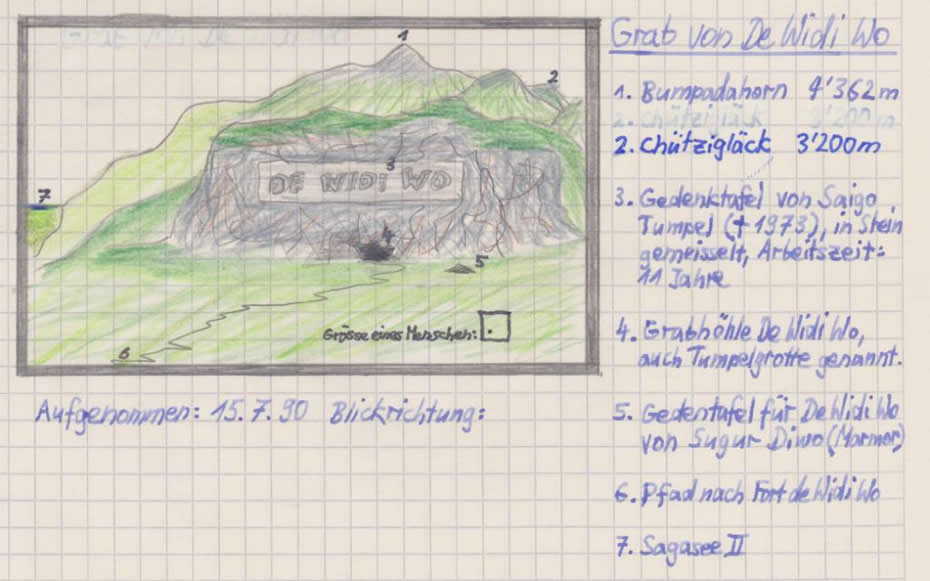 Grab von De Widi Wo
1. Bumpadahorn 4'362m
2. Chützigläck 3'200m
2. Chützigläck 3'200m
3. Gedenktafel von Saigo
Tumpel (✝1973), in Stein
gemeisselt, Arbeitszeit:
11 Jahre
4. Grabhöhle De Widi Wo,
auch Tumpelgrotte genannt.
5. Gedentafel für De Widi Wo
von Sugur Diwo (Marmor)
6. Pfad nach Fort de Widi Wo
7. Sagasee II
1
2
3
DE WIDI WO
4
5
6
7
Grösse eines Menschen:
Aufgenommen: 15.7.90 Blickrichtung: